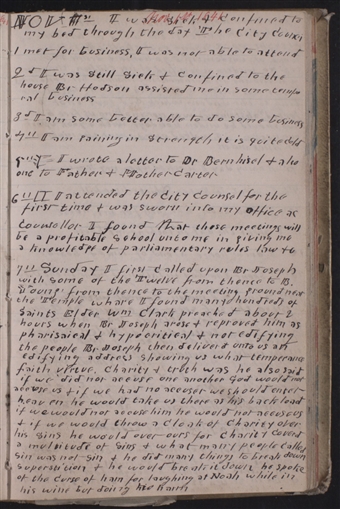 NOV 1st I was sick & confined to
my bed through the day The City Coun
met for business, I was not able to attend
2d I was still sick & confined to the
house Br Hodson assisted me in some tempo
ral business
3d I am some better able to do some business
4th I am gaining in strength it is quite cold
5th I wrote a letter to Dr Bernhisel & also
one to Father & Mother Carter
6th I attended the City Counsel for the
first time & was sworn into my office as
Counsellor I found that those meetings will
be a profitable School unto me in giving me
a knowledge of parliamentary rules law &c
7th Sunday I first called upon Br Joseph
with some of the Twelve from thence to B.
Young from thence to the meeting ground near
the Temple whare I found many hundreds of
Saints Elder Wm Clark preached about 2
hours when Br Joseph arose & reproved him as
pharisaical & hypocritical & not edifying
the people Br Joseph then deliverd unto us an
edifying address showing us what temperance
faith virtue, charity & truth was he also said
if we did not accuse one another God would not
accuse us & if we had no accuser we should enter
heaven he would take us there as his back load
if we would not accuse him he would not accuse us
& if we would throw a cloak of charity over
his sins he would over ours for charity coverd
a multitude of Sins & what many people called
sin was not sin & he did many things to break down
superstition & he would break it down he spoke
of the curse of ham for laughing at Noah while in
his wine but doing no harm